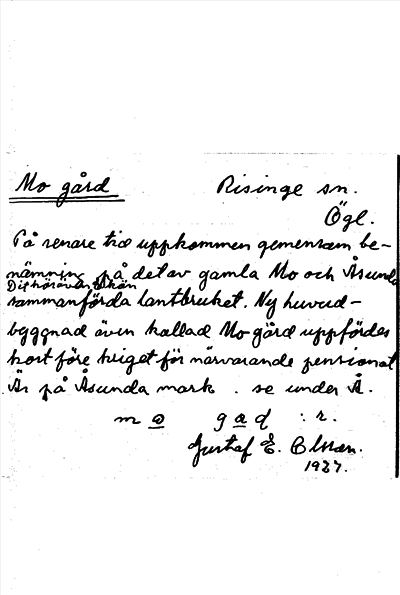 Mo gård Risinge sn.
Ögl.
På senare tid uppkommen gemensam be-
nämning på det av gamla Mo och Åsunda
Dit hör även
sammanförda lantbruket. Ny huvud-
byggnad även kallad Mo gård uppfördes
kort före kriget för närvarande pensionat
Är på Åsunda mark. se under Å.
m o g a d : r.
Gustaf E. Olsson.
1927.